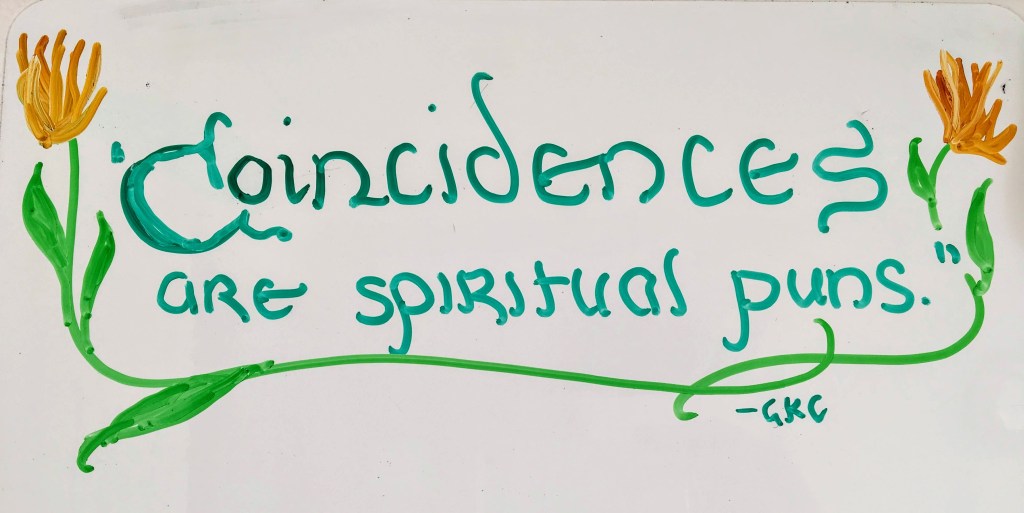 "Coincidences
are spiritual puns."
-GKC